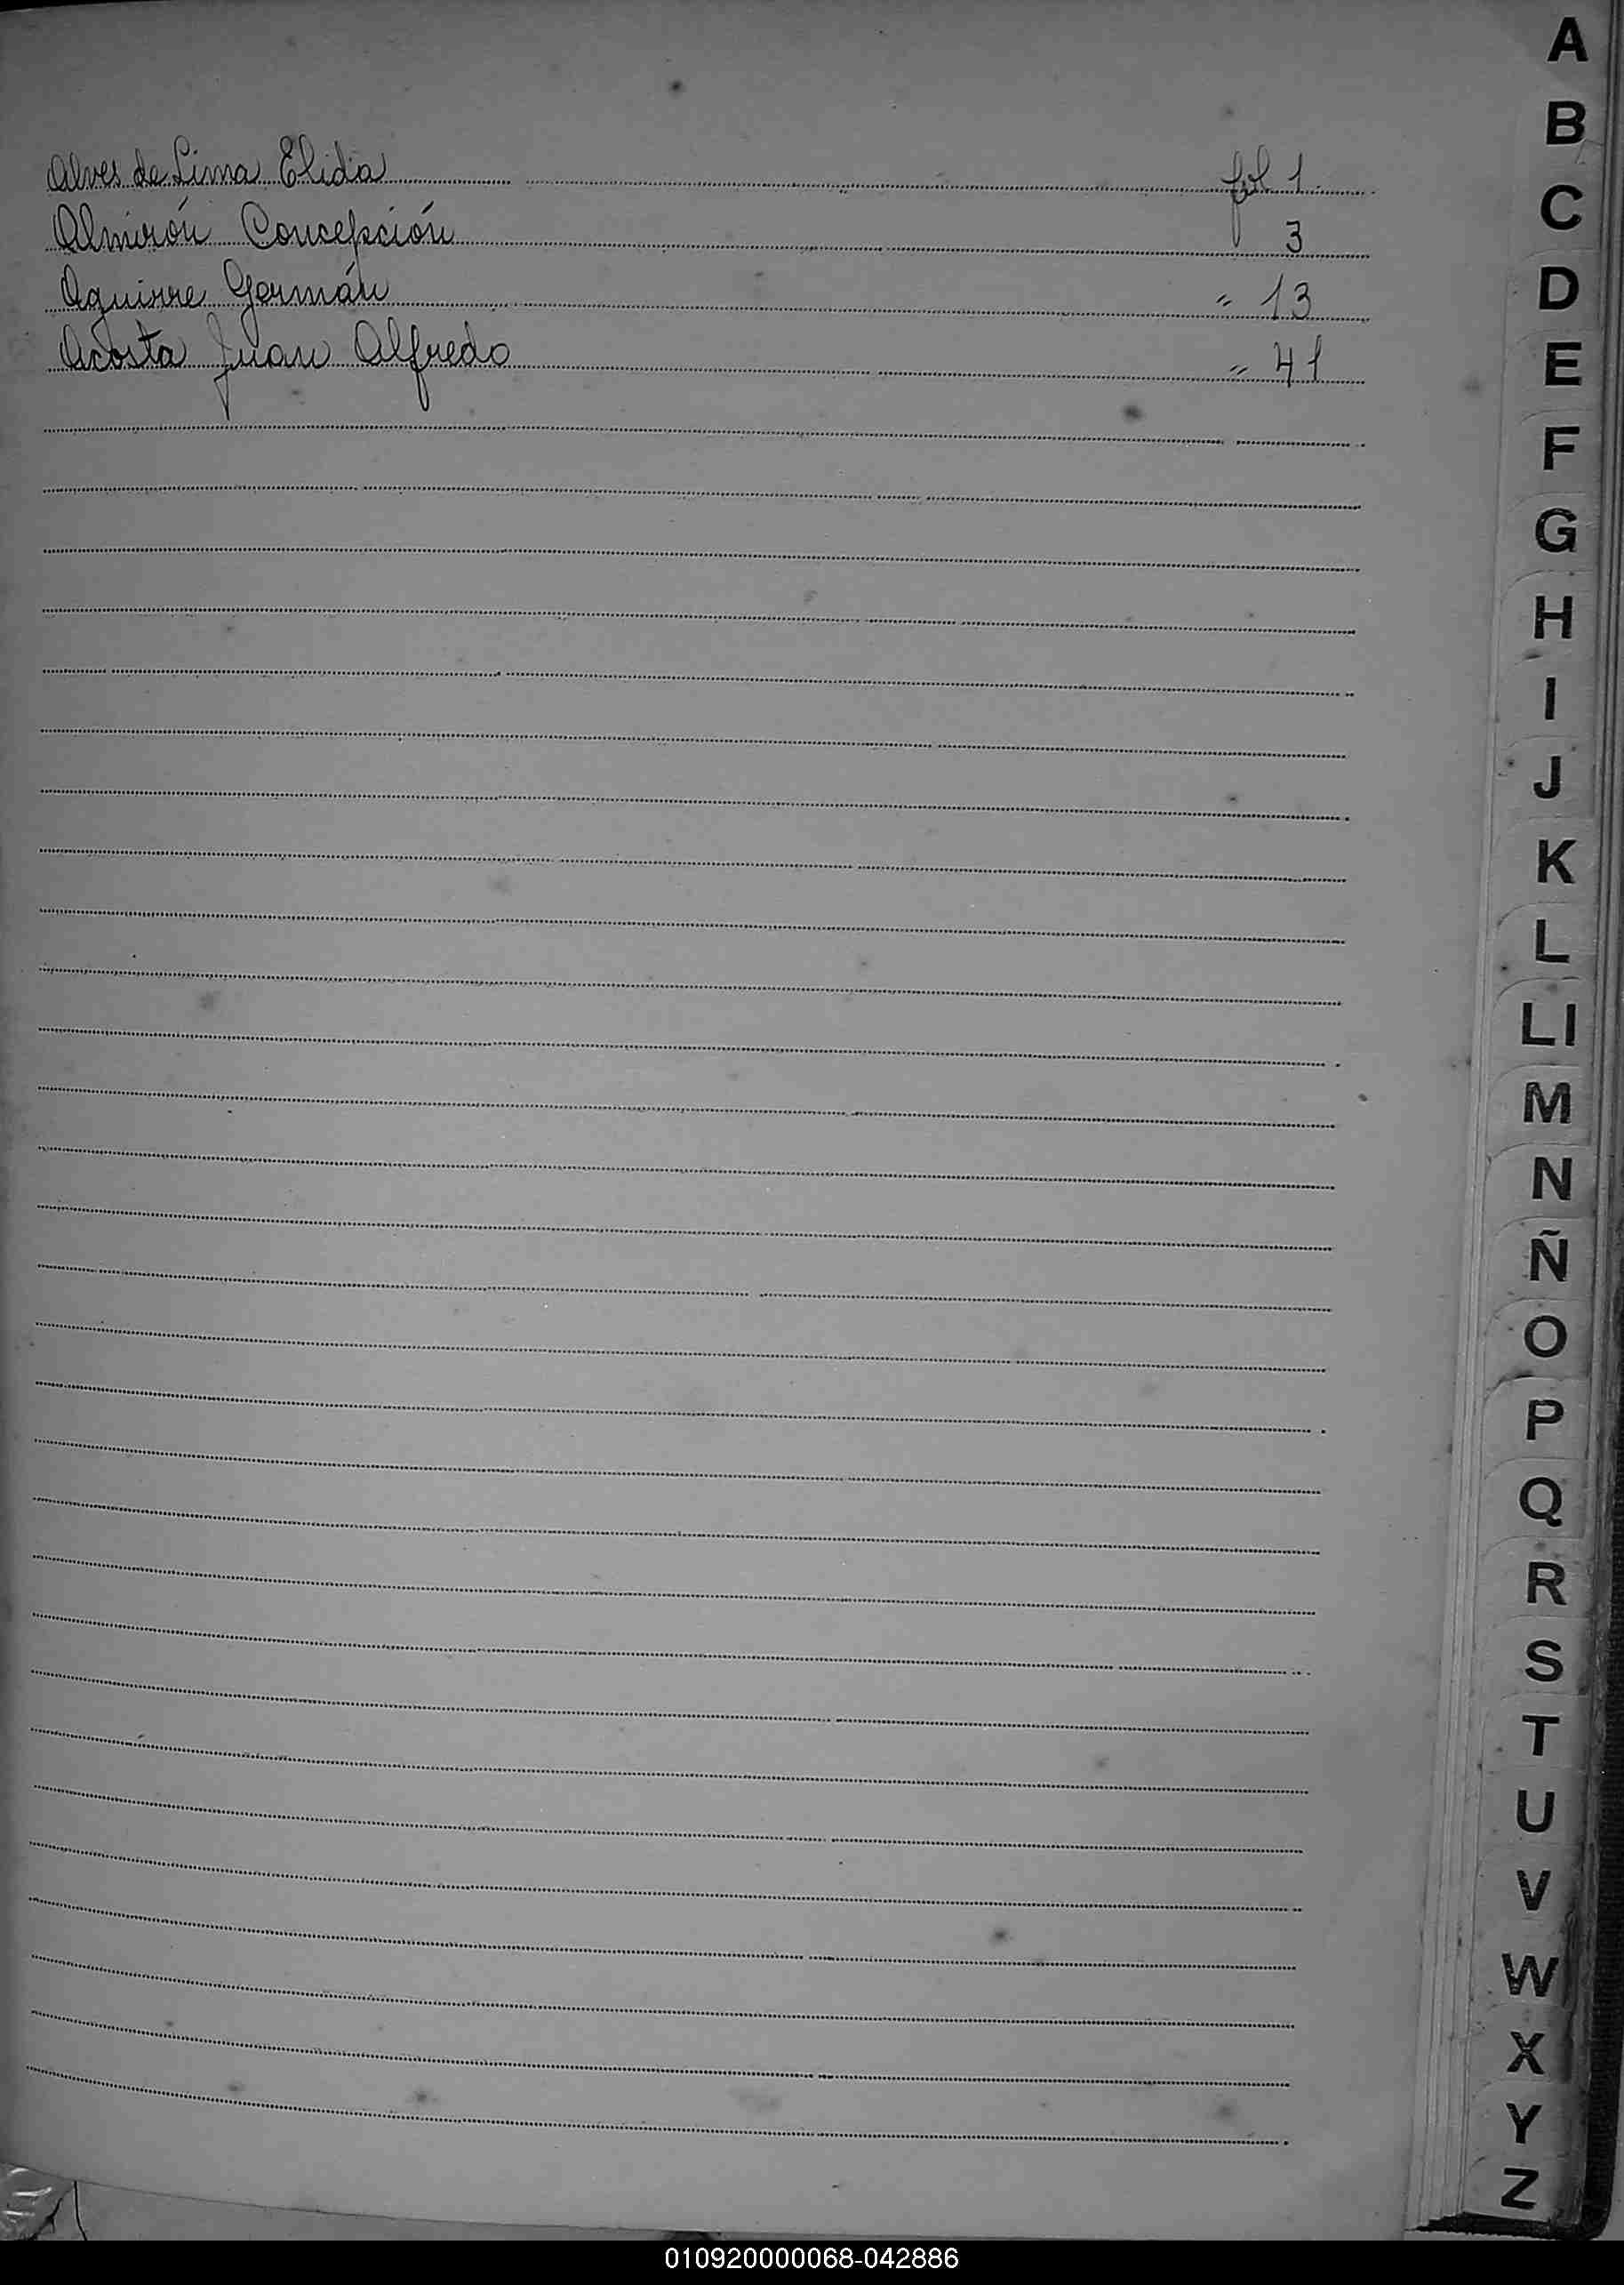 Alves de Lima Elida fol 1
Almirón Concepción 3
Aguirre Germán " 13
Acosta Juan Alfredo " 41
A
B
C
D
E
F
G
H
I
J
K
L
Ll
M
N
Ñ
O
P
Q
R
S
T
U
V
W
X
Y
Z
010920000068-042886